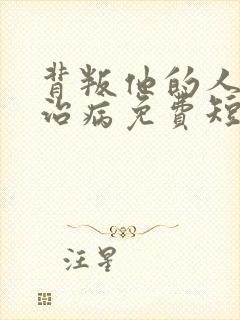 背叛他的人
治病免费短
汪星